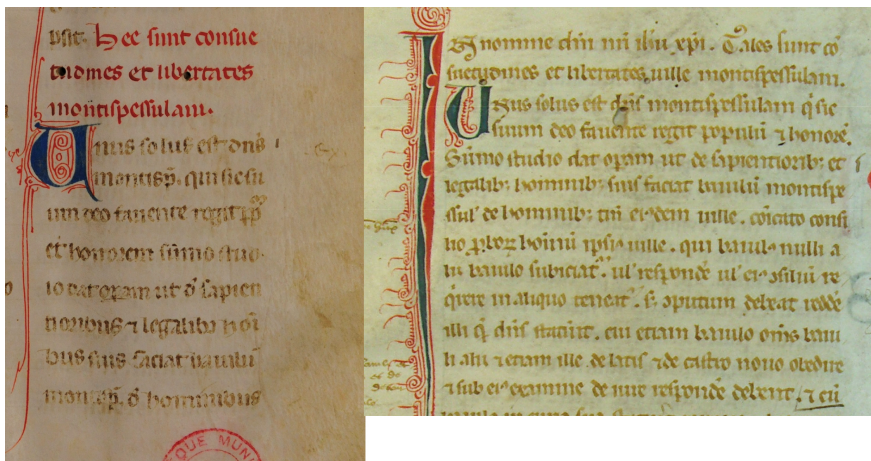 psit. Hee sunt consue
tudines et libertates
montispessulani.
Unus solus est dns
montisp. qui sic su
um deo favente regit pp
et honorem sumo stu
io dat opam ut d sapien
tioribus ⁊ legalib; hoi
bus suis faciat baiulu
montisp. d hominibus
QUE MUNI
In nomine dni nri ihu xpi. Tales sunt co
suetudines et libertates ville montispessulani.
Unus solus est dns montispessulani q sic
suum deo favente regit populu ⁊ honore.
Sumo studio dat opam ut de sapientiorib; et
legalib; hominib; suis faciat baiulu montispe
ssul de hominib; ejusdem ville. coicato consi
lio pboz hoinu ipsi ville. qui baiul nulli a
lii baiulo subiciat. ul respond ul ei osiliu re
qrere in aliquo teneat. s; aputum debeat redde
illi q dns statuit. cui etiam baiulo oms baiu
li alii ⁊ etiam ille de latis ⁊ de castro novo obedire
⁊ sub ei examine de iure responde debent. ⁊ cu